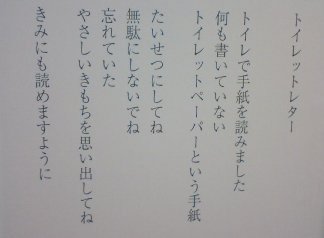 トイレットレター
トイレで手紙を読みました
何も書いていない
トイレットペーパーという手紙
たいせつにしてね
無駄にしないでね
忘れていた
やさしいきもちを思い出してね
きみにも読めますように